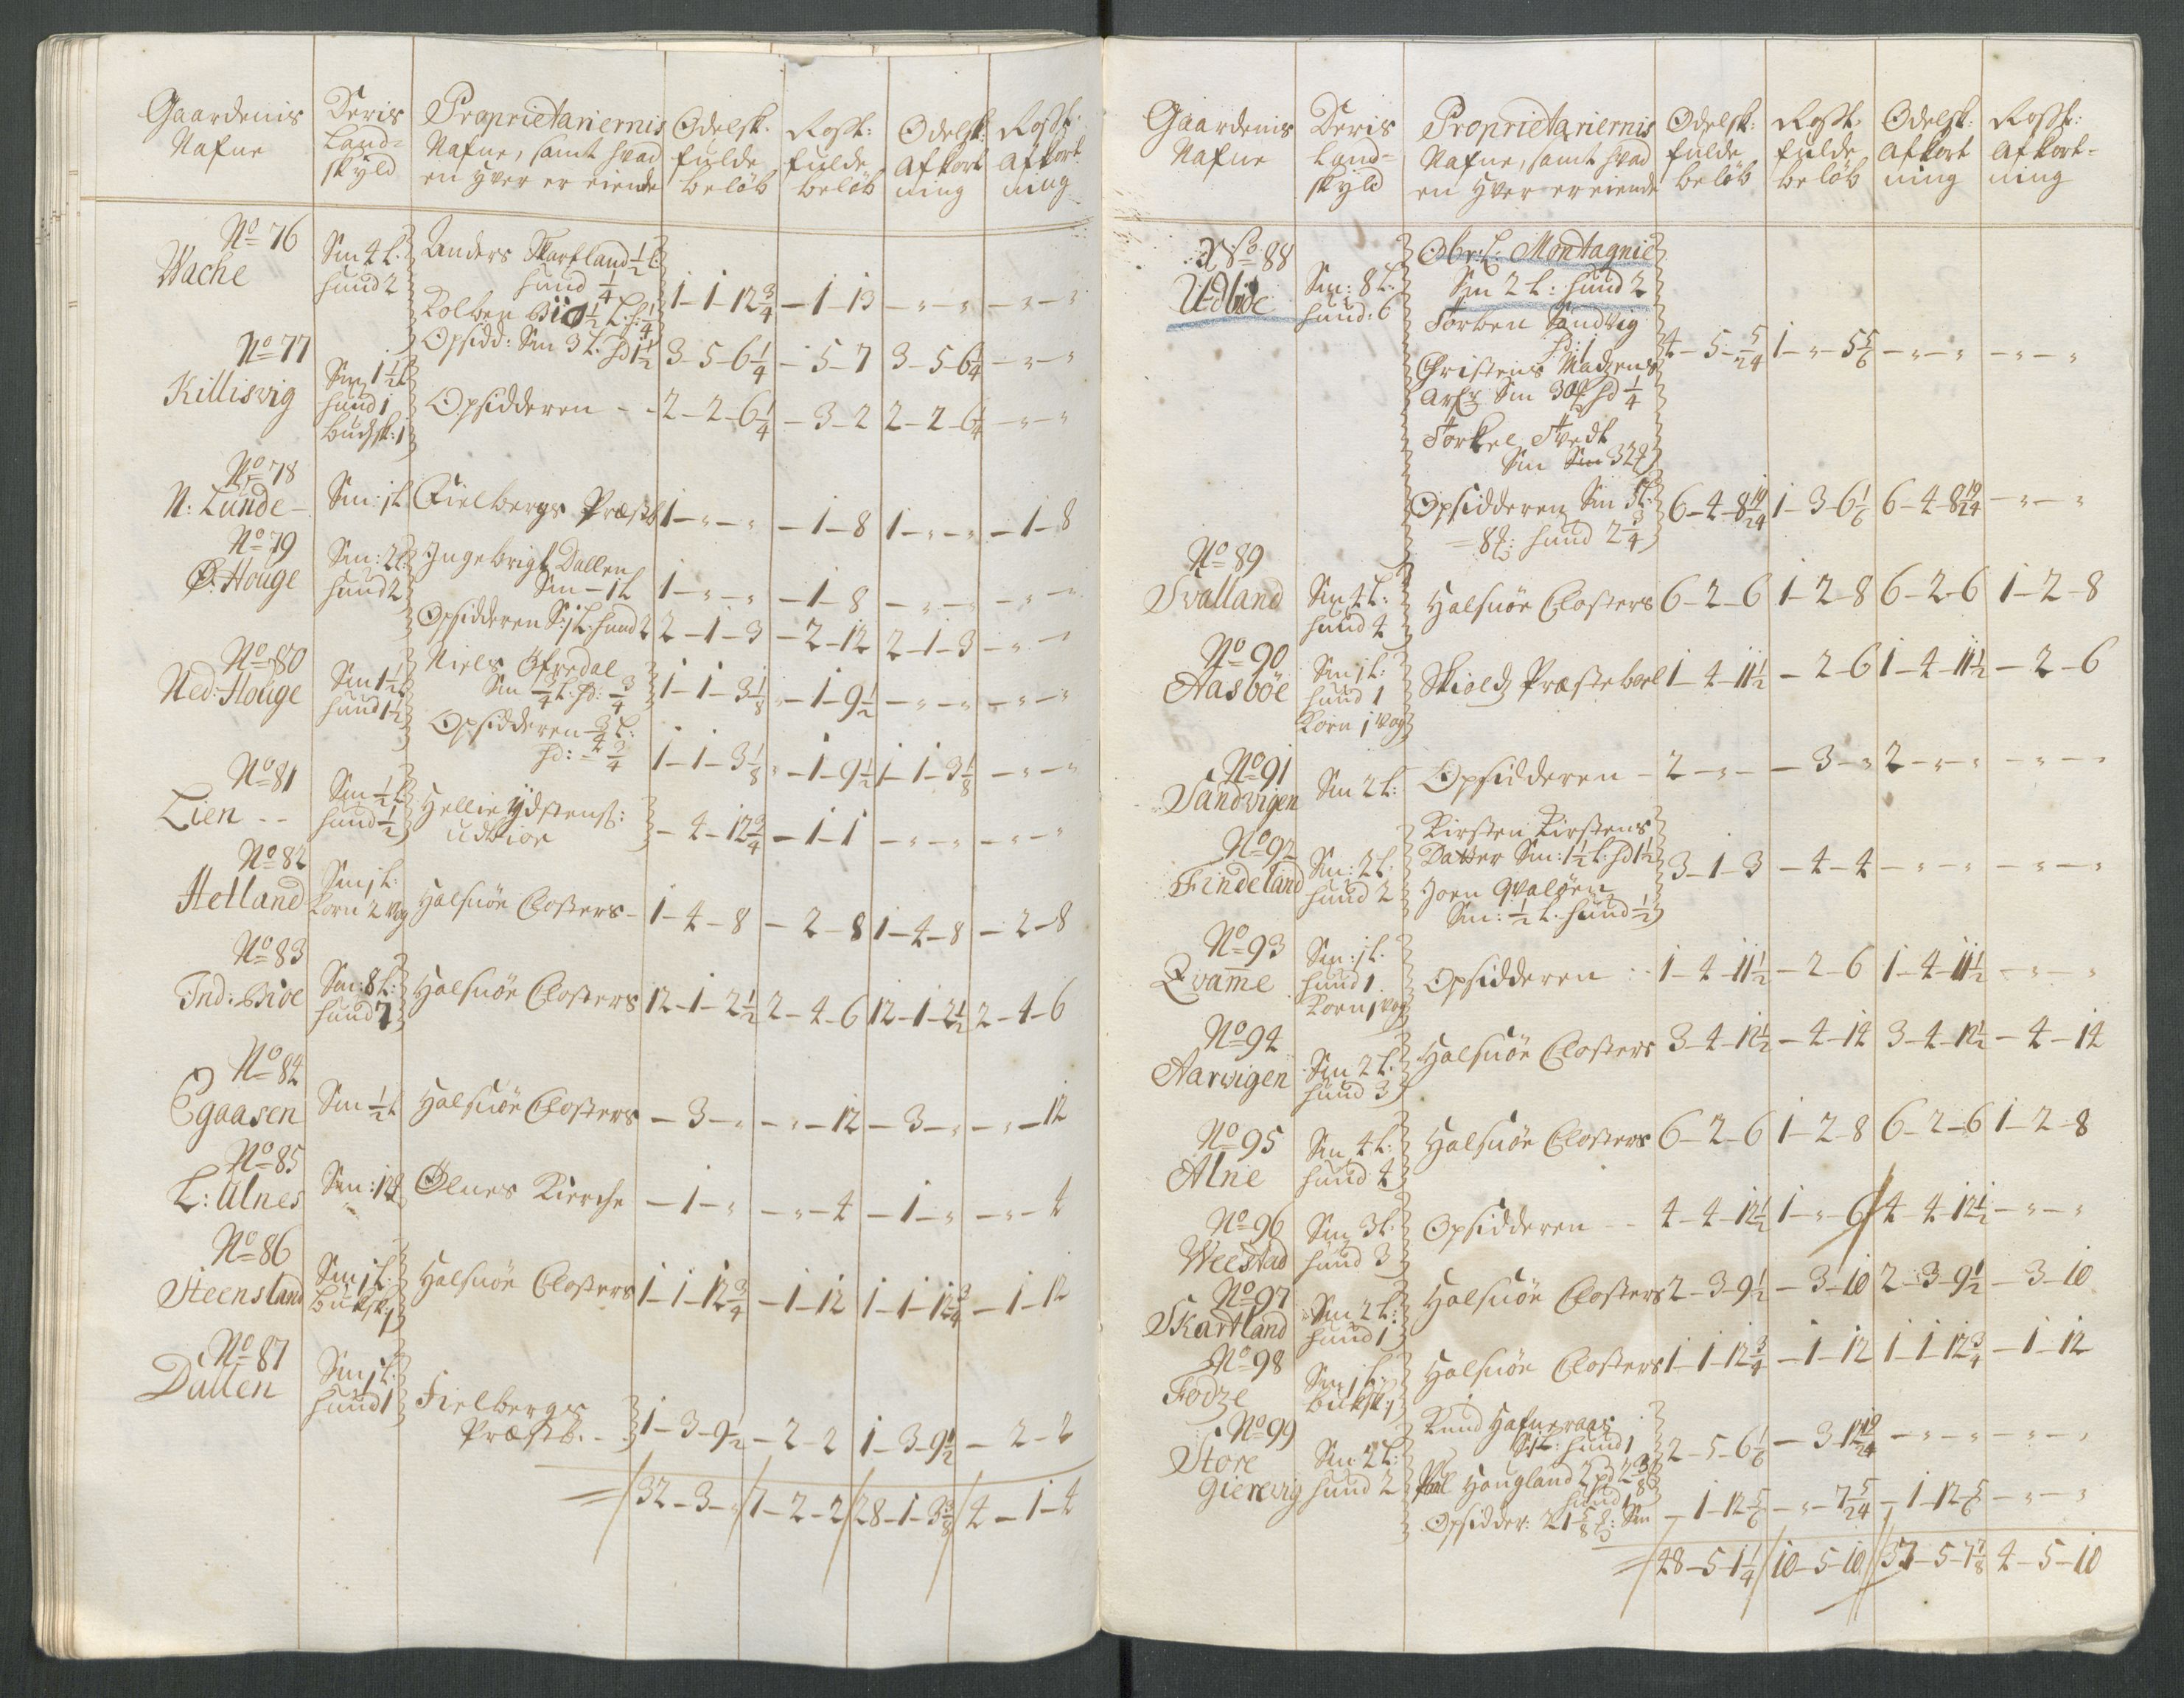 Gaardenis Nafne | Deris Land=skyld | Proprietariernis Nafne, samt hvad en hver er eiende | Odelsk. fulde beløb | Rosst: fulde beløb | Odelsk: Afkortning | Rosst: Afkortning
No 76
Wache Sm 4 L: hund 2
Anders Skartland ½ L hund ¼
Kolben Biø ½ L. h: ¼ 1-1-12¾ -1-13 -"-" -"-"
Opsidd: Sm 3 L. hd 1½ 3-5-6¼ -5-7 3-5-6¼ -"-"
No 77
Killisvig Sm 1½ L hund 1 buchsk: 1 Opsidderen - - 2-2-6¼ -3-2 2-2-6¼ -"-"
No 78
N: Lunde- Sm: 1 L Fielbergs Præstb 1-"-" -1-8 1-"-" -1-8
No 79
Ø: Houge Sm: 2 L: hund 2
Ingebrigt Dallen Sm - 1 L 1-"-" -1-8 -"-" -"-"
Opsidderen S: 1 L: hund 2 2-1-3 -2-12 2-1-3 -"-"
No 80
Ned: Houge Sm 1½ L hund 1½
Niels Øfredal Sm ¾ L. hd: ¾ 1-1-3⅛ -1-9½ -"-" -"-"
Opsidderen ¾ L: hd: - ¾ 1-1-3⅛ -1-9½ 1-1-3⅛ -"-"
No 81
Lien - - Sm ½ L hund ½ Hellie Ydstens: udbioe -4-12¾ -1-1 -"-" -"-"
No 82
Hetland Sm 1 L: Korn 2 Vog Halsnöe Closters - 1-4-8 -2-8 1-4-8 -2-8
No 83
Ind: Bioe Sm: 8 L: hund 7 Halsnöe Closters 12-1-2½ 2-4-6 12-1-2½ 2-4-6
No 84
Egaasen Sm ½ L Halsnöe Closters -3-" -"-12 -3-" -"-12
No 85
L: Ulnes Sm: 12 Ølnes Kierche -1-" -"-4 -1-" -"-4
No 86
Steensland Sm 1 L. Buksk 1 Halsnöe Closters 1-1-12¾ -1-12 1-1-12¾ -1-12
No 87
Dullen Sm 1 L. hund 1 Fielbergs Præstb. - . 1-3-9½ -2-2 1-3-9½ -2-2
32-3-" 7-2-2 28-1-3⅜ 4-1-4
Gaardenis Nafne | Deris Land=skyld | Proprietariernis Nafne, samt hvad en hver er eiende | Odelsk: fulde beløb | Rosst. fulde beløb | Odelsk: Afkortning | Rosst: Afkort=ning
No 88
Udbioe Sm: 8 L. hund: 6
Obr: L. Montagnie
Sm 2 L: hund 2
Torben Sandvig
hd: 1
Christens Madzens
Arf: Sm 30 hd ¼ 4-5-5/24 1-"-5⅚ -"-" -"-"
Torkel Tvedt
Sm 32
Opsidderen Sm 5 L: 6-4-8 19/24 1-3-6⅙ 6-4-8 19/24 -"-"
-8: hund 2¾
No 89
Svalland Sm 4 L: hund 4 Halsnöe Closters 6-2-6 1-2-8 6-2-6 1-2-8
No 90
Aasböe Sm 1 L: hund 1 Korn 1 vog Skiolds Præstebol 1-4-11½ -2-6 1-4-11½ -2-6
No 91
Sandvigen Sm 2 L: Opsidderen - 2-"- -3-" 2-"-" -"-"
No 92
Findeland Sm: 2 L. hund 2
Kirsten Kirstens
Datter Sm: 1½ L: hd 1½ 3-1-3 -4-4 -"-" -"-"
Joen Qvaløen
Sm: ½ L. hund ½
No 93
Qvame Sm: 1 L. hund 1 Korn 1 vog Opsidderen 1-4-11½ -2-6 1-4-11½ -"-"
No 94
Aarvigen Sm 2 L. hund 3 Halsnöe Closters 3-4-12½ -4-14 3-4-12½ -4-14
No 95
Alne Sm 4 L: hund 4 Halsnöe Closters 6-2-6 1-2-8 6-2-6 1-2-8
No 96
Weestad Sm 3 L. hund 3 Opsidderen - - 4-4-12½ 1-"-6 4-4-12½ -"-"
No 97
Skartland Sm 2 L: hund 1 Halsnöe Closters 2-3-9½ -3-10 2-3-9½ -3-10
No 98
Fodze Sm 1 L. buksk: 1 Halsnöe Closters 1-1-12¾ -1-12 1-1-12¾ -1-12
No 99
Store Gierevig Sm: 2 L: hund 2
Knud Hafneraas
S: 1 L: hund 1 2-5-6⅙ -3-12 19/24 -"-" -"-"
Hougland
hund 1
Opsidder: Sm -1-12⅚ -"-7 5/24 -1-12⅚ -"-"
48-5-1¼ 10-5-10 37-5-7⅛ 4-5-10